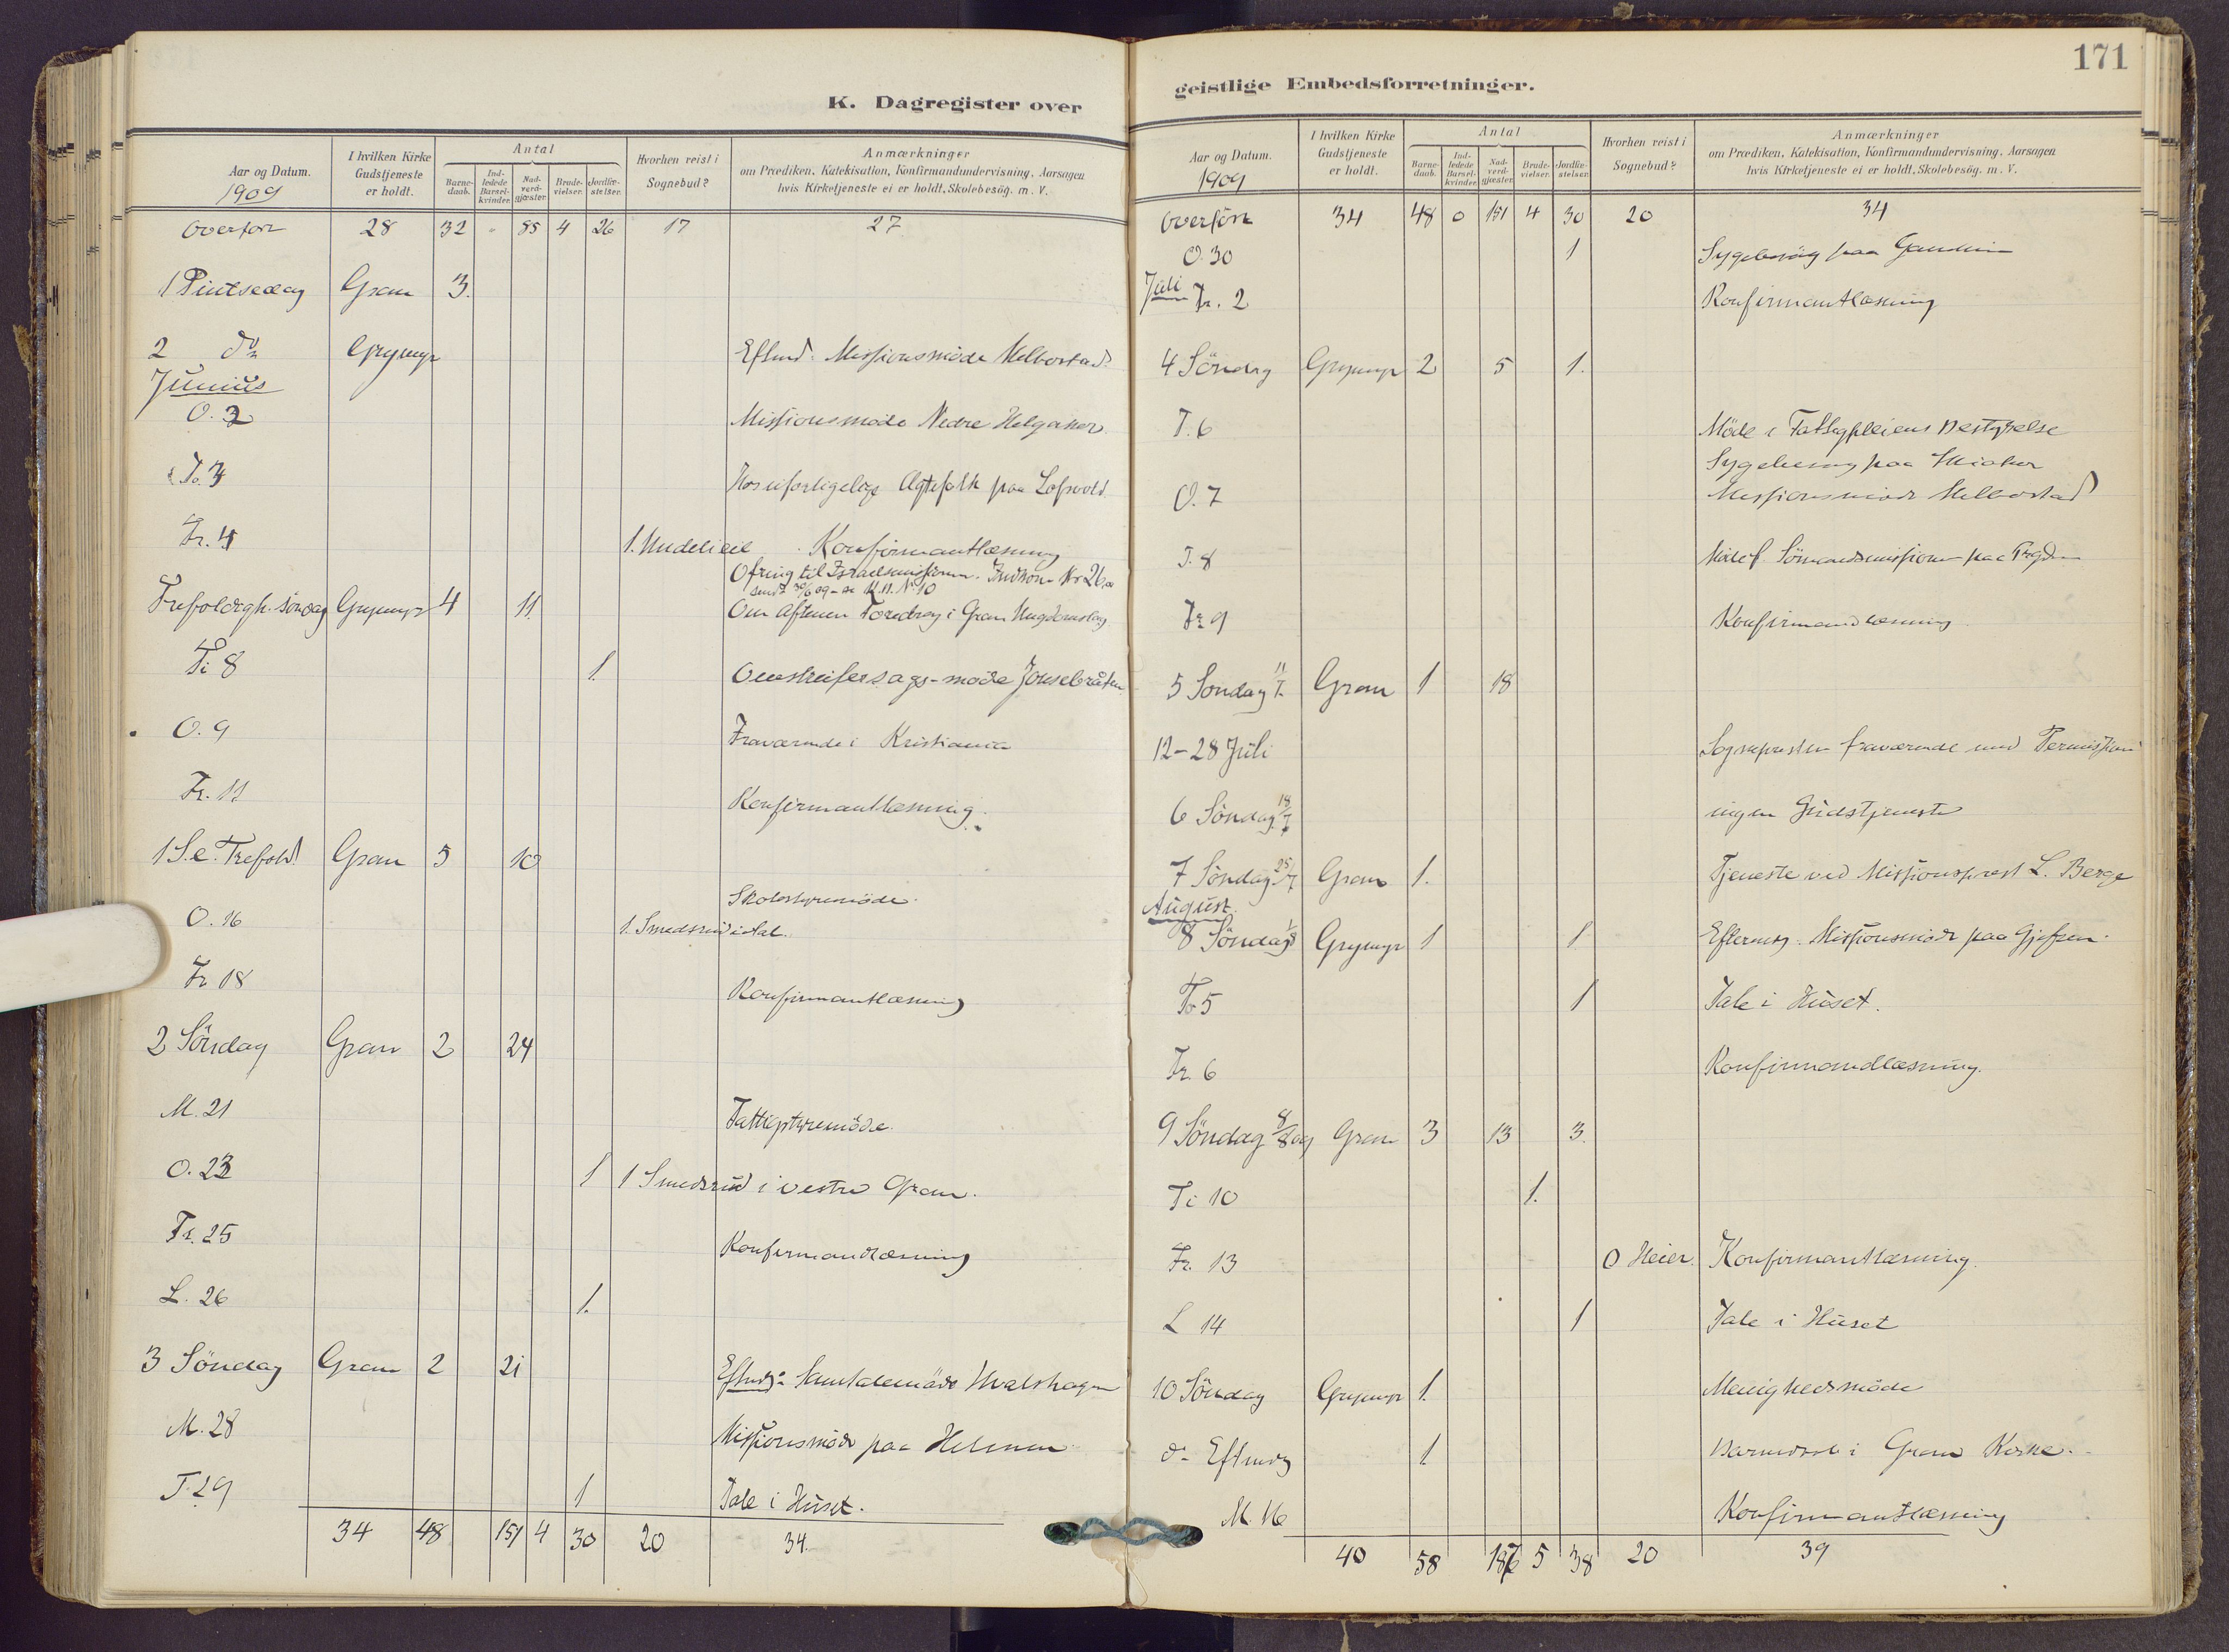 K. Dagregister over
Aar og Datum. 1909
I hvilken Kirke Gudstjeneste er holdt.
Antal
Barne-daab.
Ind-ledede Barsel-kvinder.
Nad-verd-gjæster.
Brude-vielser.
Jordfæ-stelser.
Hvorhen reist i Sognebud?
Anmærkninger
om Prædiken, Katekisation, Konfirmandundervisning, Aarsagen
hvis Kirketjeneste ei er holdt, Skolebesög. m. V.
Overför 28 32 - 85 4 26 17 27
1 Pintsedag Gran 3.
2 do Grymyr Eftmd. Missionsmöde Helbostad
Junius
O. 2 Missionsmöde Nedre Helgaker
To. 3 Ægtefolk paa
Fr. 4 1. Konfirmantlæsning
Ofring til Israelsmissionen. Indkom Kr 26
Trefoldigh. söndag Grymyr 4 11. Om Aftenen Foredrag i Gran Ungdomslag
Ti 8 1. Omstreifersags-möde Jonsebråten
O. 9 Fraværende i Kristiania
Fr. 11 Konfirmantlæsning.
1 S. e. Trefold. Gran 5 10
Skolestyremöde.
O. 16 1. Smedsrud i Aal.
Fr 18 Konfirmantlæsning
2 Söndag Gran 2 24
M. 21 Fattigstyremöde.
O. 23 1 1 Smedsrud i vestre Gran.
Fr. 25 Konfirmandlæsning
L. 26 1.
3 Söndag Gran 2 21 Eftmdg: Samtalemöde Hvalshagen
M. 28 Missionsmöde paa Helmen
T. 29 1 Tale i Huset.
34 48 151 4 30 20 34.
171
geistlige Embedsforretninger.
Aar og Datum. 1909
I hvilken Kirke Gudstjeneste er holdt.
Antal
Barne-daab.
Ind-ledede Barsel-kvinder.
Nad-verd-gjæster.
Brude-vielser.
Jordfæ-stelser.
Hvorhen reist i Sognebud?
Anmærkninger
om Prædiken, Katekisation, Konfirmandundervisning, Aarsagen
hvis Kirketjeneste ei er holdt, Skolebesög. m. V.
Overfört 34 48 0 151 4 30 20 34
O. 30 1 Sygebesög paa
Juli
Fr. 2 Konfirmantlæsning
4 Söndag Grymyr 2 5 1.
T. 6 Möde i Fattigpleiens Bestyrelse
Sygebesög paa
O. 7 Missionsmöde Helbostad
T. 8 Möde f. Sömandsmissionen paa
Fr 9 Konfirmandlæsning
5 Söndag 11/7 Gran 1 18
12-28 Juli Sognepresten fraværende med Permission
6 Söndag 18/7 ingen Gudstjeneste
7 Söndag 25/7 Gran 1. Tjeneste ved Missionsprest L. Berge
August.
8 Söndag 1/8 Grymyr 1 1 Eftermdg. Missionsmöde paa Gjefsen.
To 5 1 Tale i Huset.
Fr. 6 Konfirmandlæsning.
9 Söndag 8/8 09 Gran 3 13 3.
Ti 10 1.
Fr. 13 0 Heier. Konfirmantlæsning.
L 14 1 Tale i Huset
10 Söndag Grymyr 1. Menighedsmöde
do Eftmdg 1 Barnedaab i Gran Kirke.
M. 16 Konfirmantlæsning
40 58 186 5 38 20 39